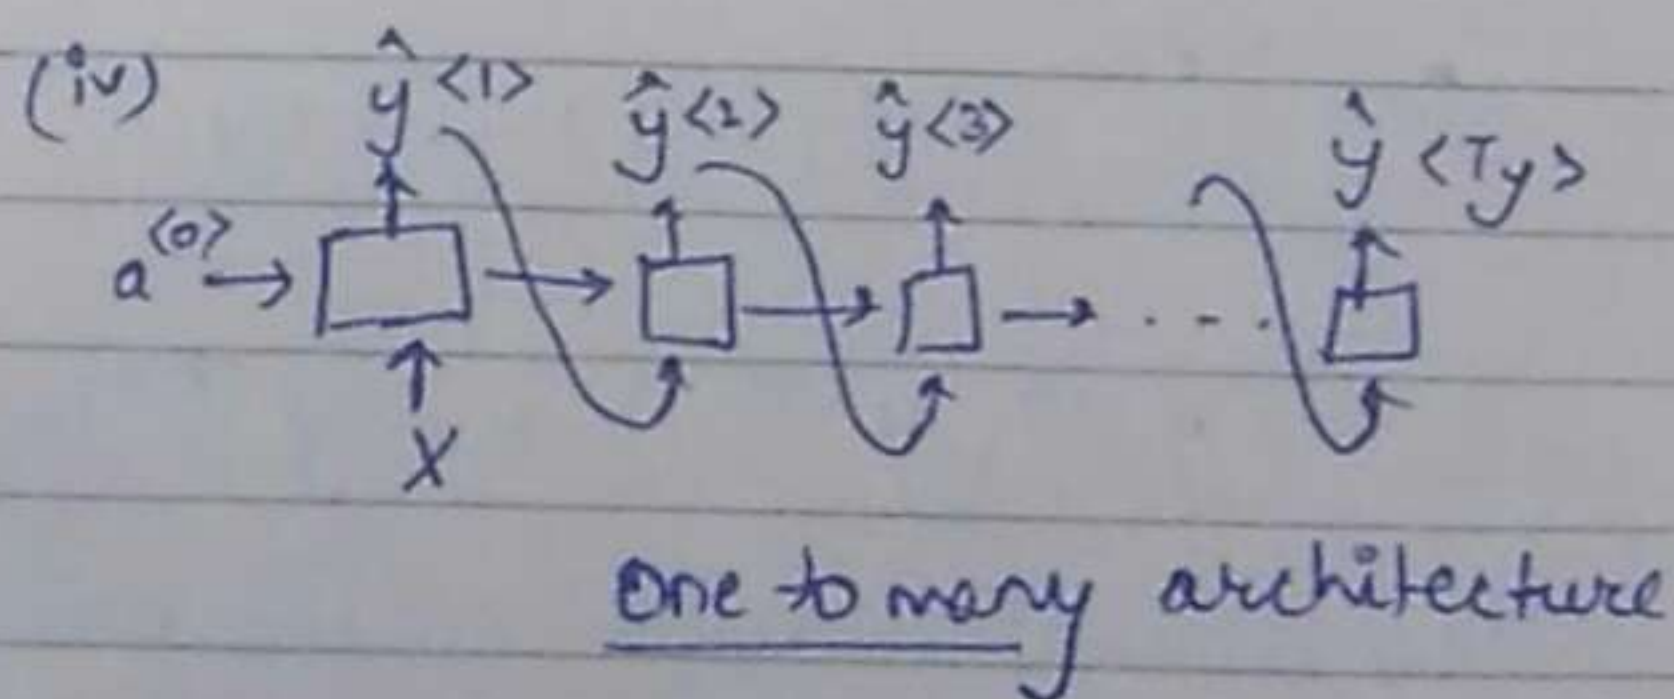 (iv) ŷ<1> ŷ<2> ŷ<3> ŷ<Ty>
a<0>
. - - .
X
One to many architecture